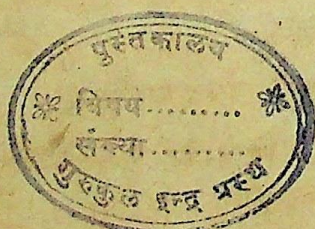 पुस्तकालय
विषय..........
संख्या..........
गुरुकुल इन्द्र प्रस्थ